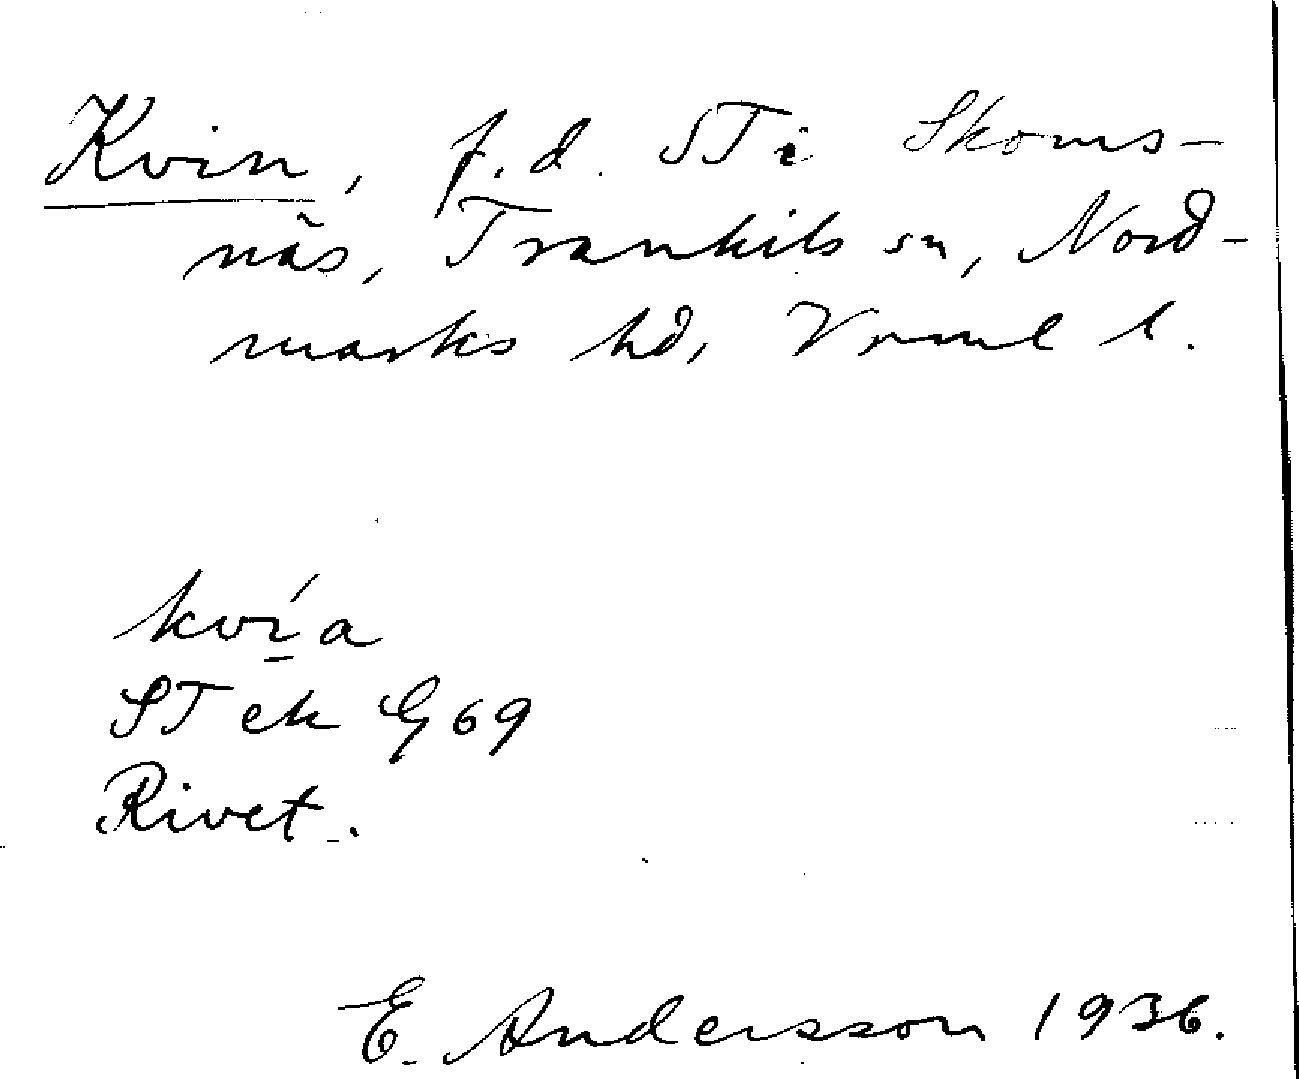 Kvin, f.d. ST i Skoms-
näs, Trankils sn, Nord-
marks hd, Vrml l.
kví̱a
ST ek G 69
Rivet.
E. Andersson 1936.